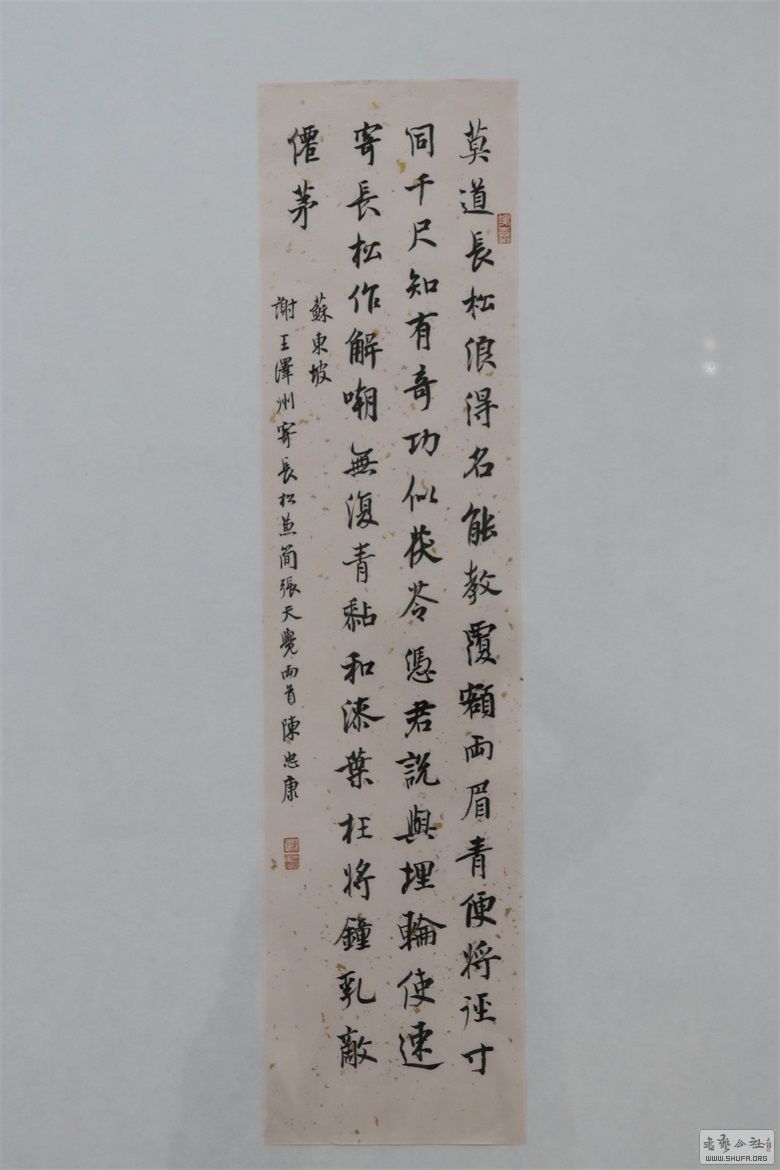 莫道長松浪得名能教覆額兩眉青便將徑寸
同千尺知有奇功似茯苓憑君說與埋輪使速
寄長松作解嘲無復青黏和漆葉枉將鍾乳敵
僊茅
蘇東坡
謝王澤州寄長松兼簡張天覺兩首陳忠康
WWW.SHUFA.ORG